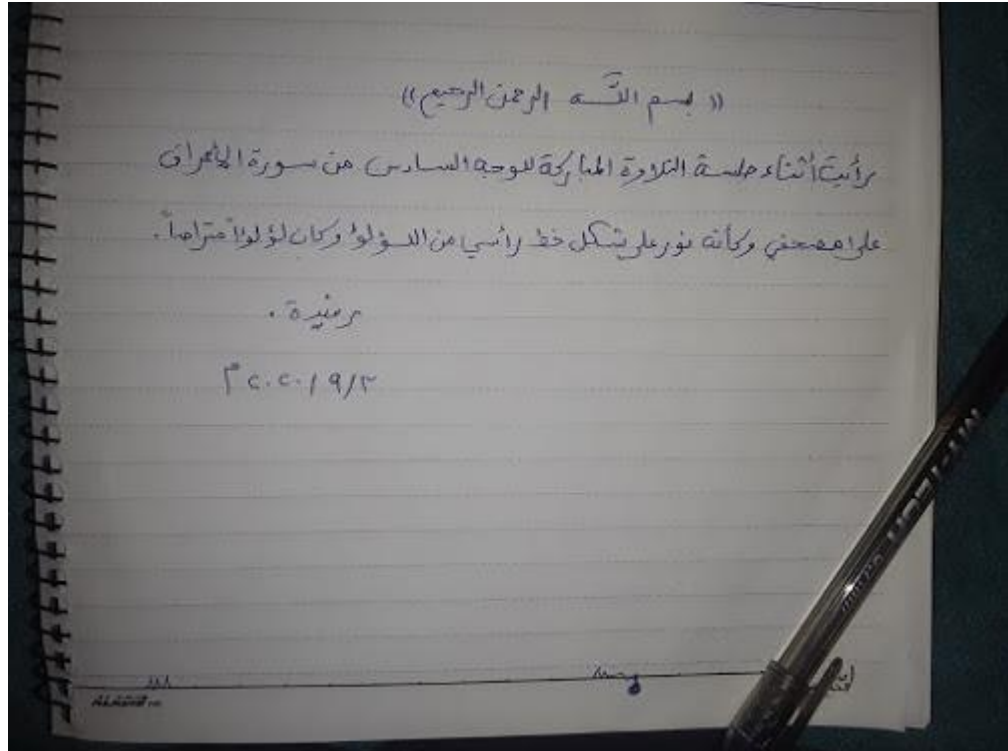 (( بسم اللّه الرحمن الرحيم ))
رأيت أثناء جلسة التلاوة المباركة للوجه السادس من سورة الأعراف
على مصحفي وكأنه نور على شكل خط رأسي من اللؤلؤ وكان لؤلؤاً متراصاً .
رشيدة .
٢٠٢٠/٩/٣ م